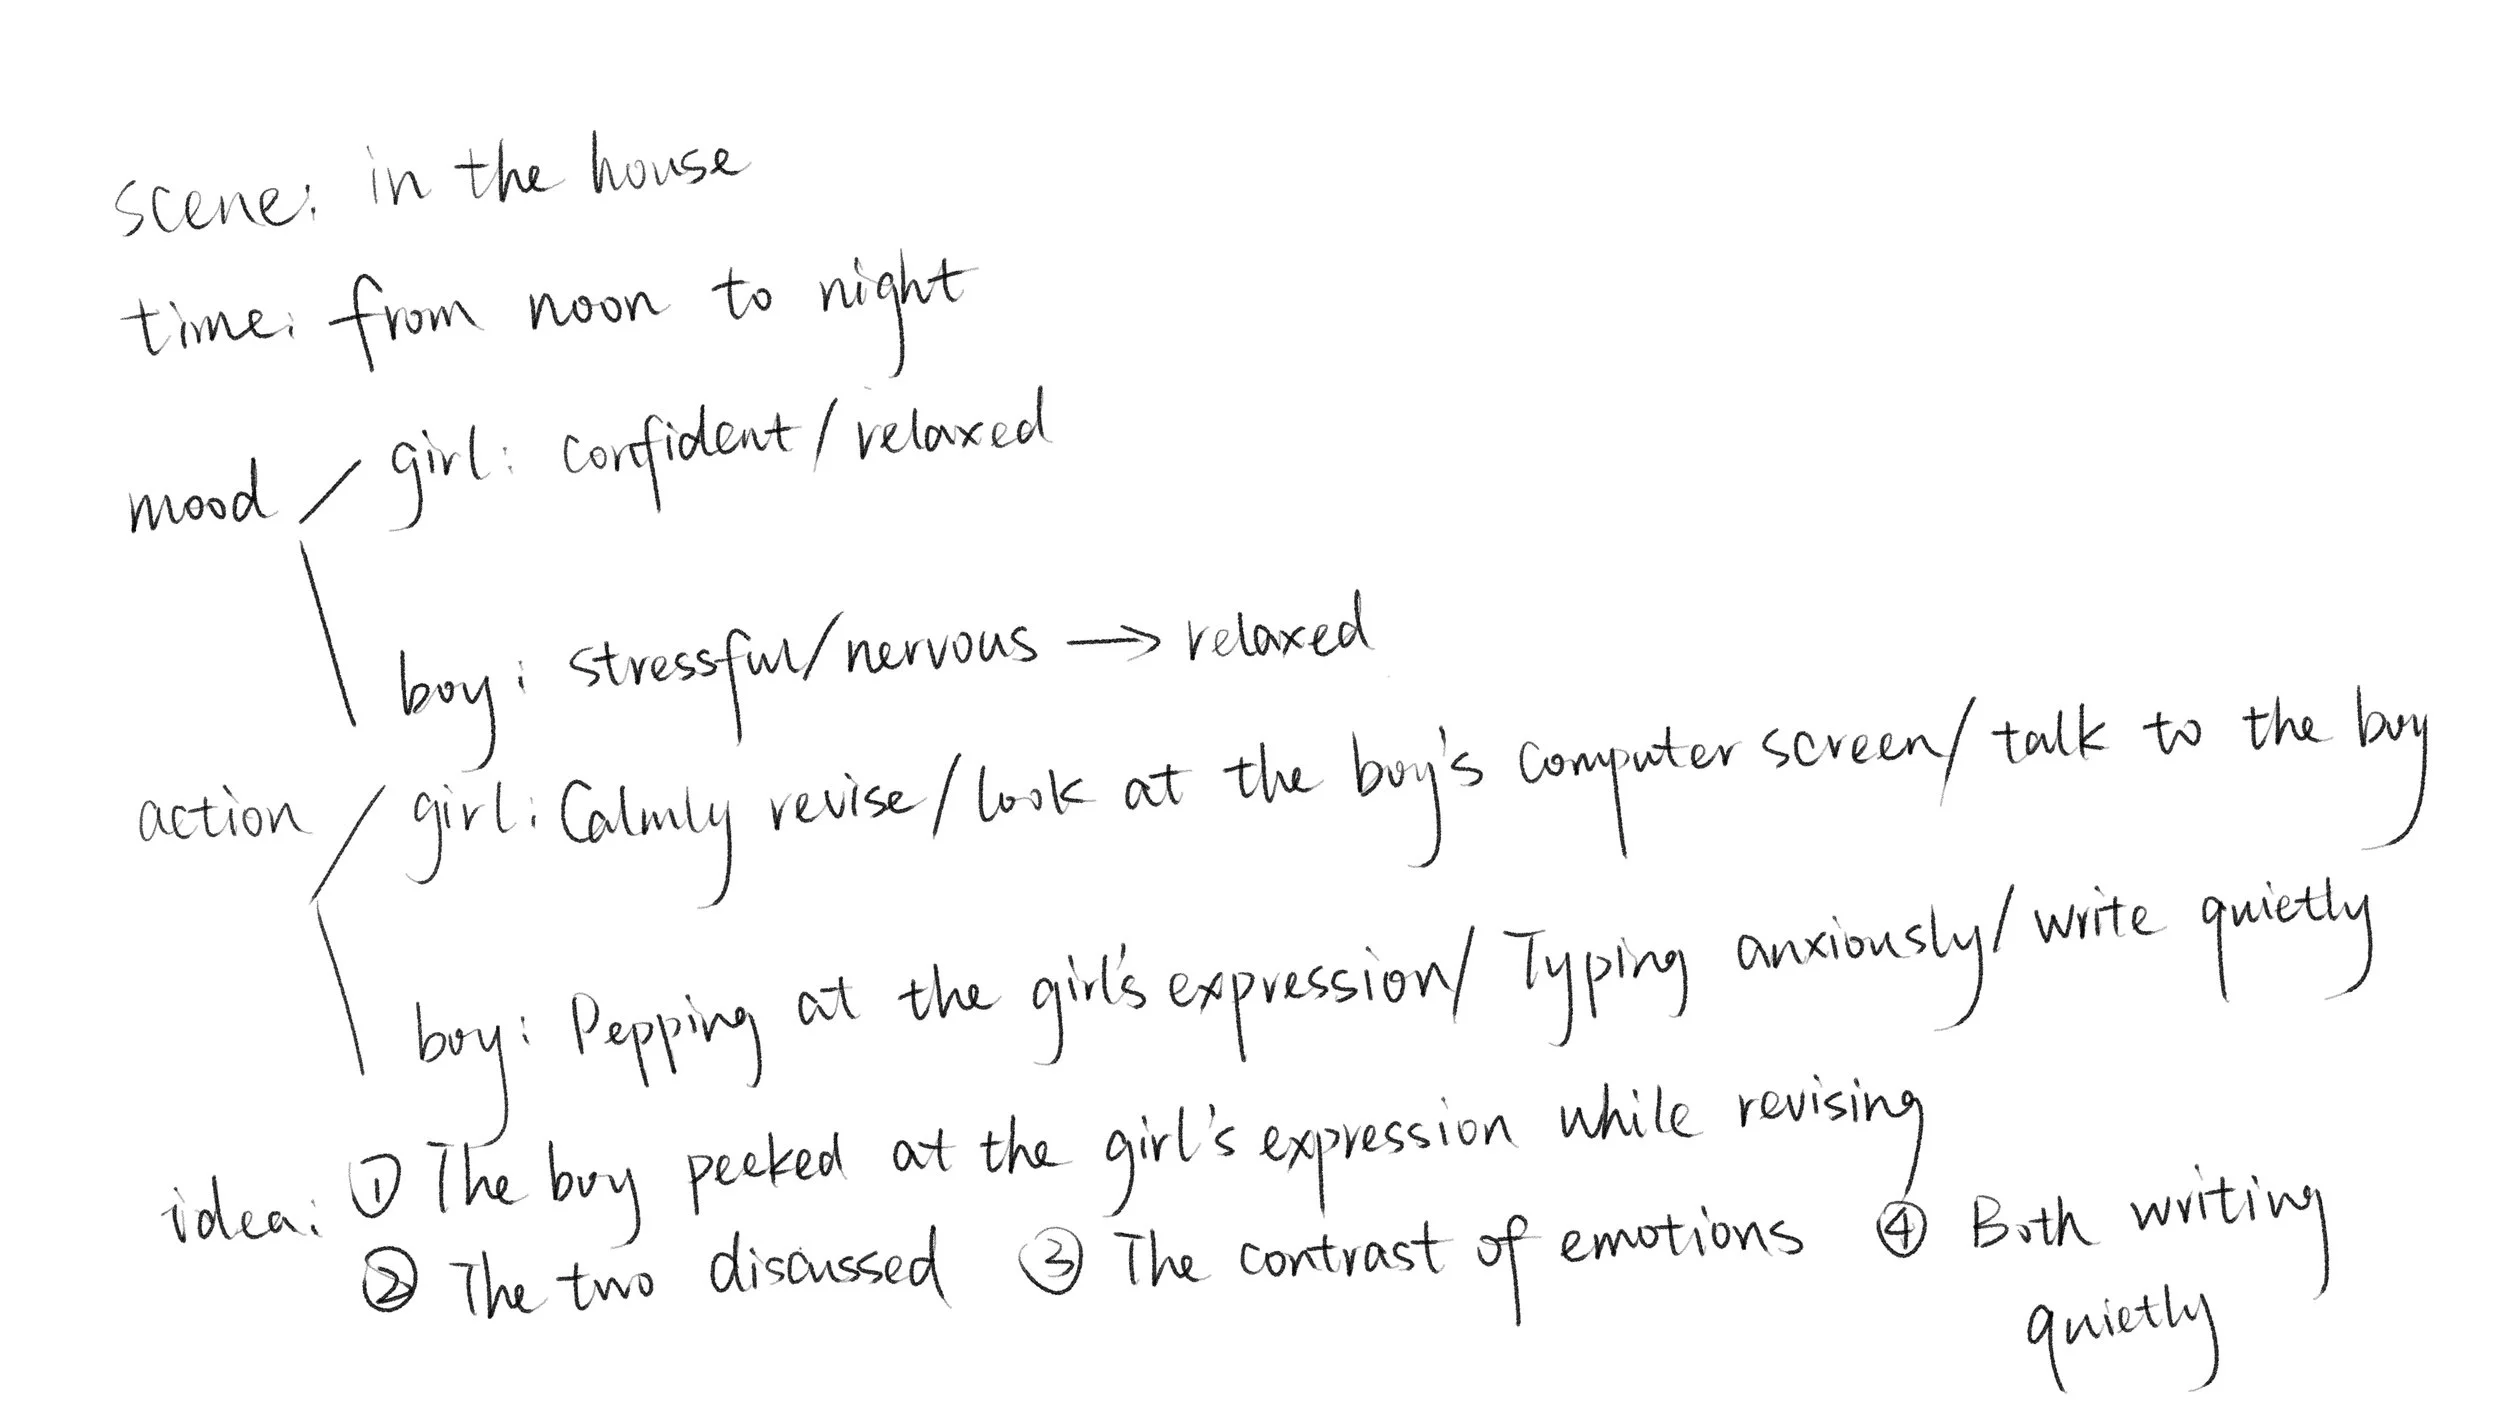 scene: in the house
time: from noon to night
mood girl: confident/relaxed
boy: stressful/nervous → relaxed
action girl: Calmly revise/look at the boy's computer screen/talk to the boy
boy: Pepping at the girl's expression/Typing anxiously/write quietly
idea: ① The boy peeked at the girl's expression while revising
② The two discussed ③ The contrast of emotions ④ Both writing
quietly